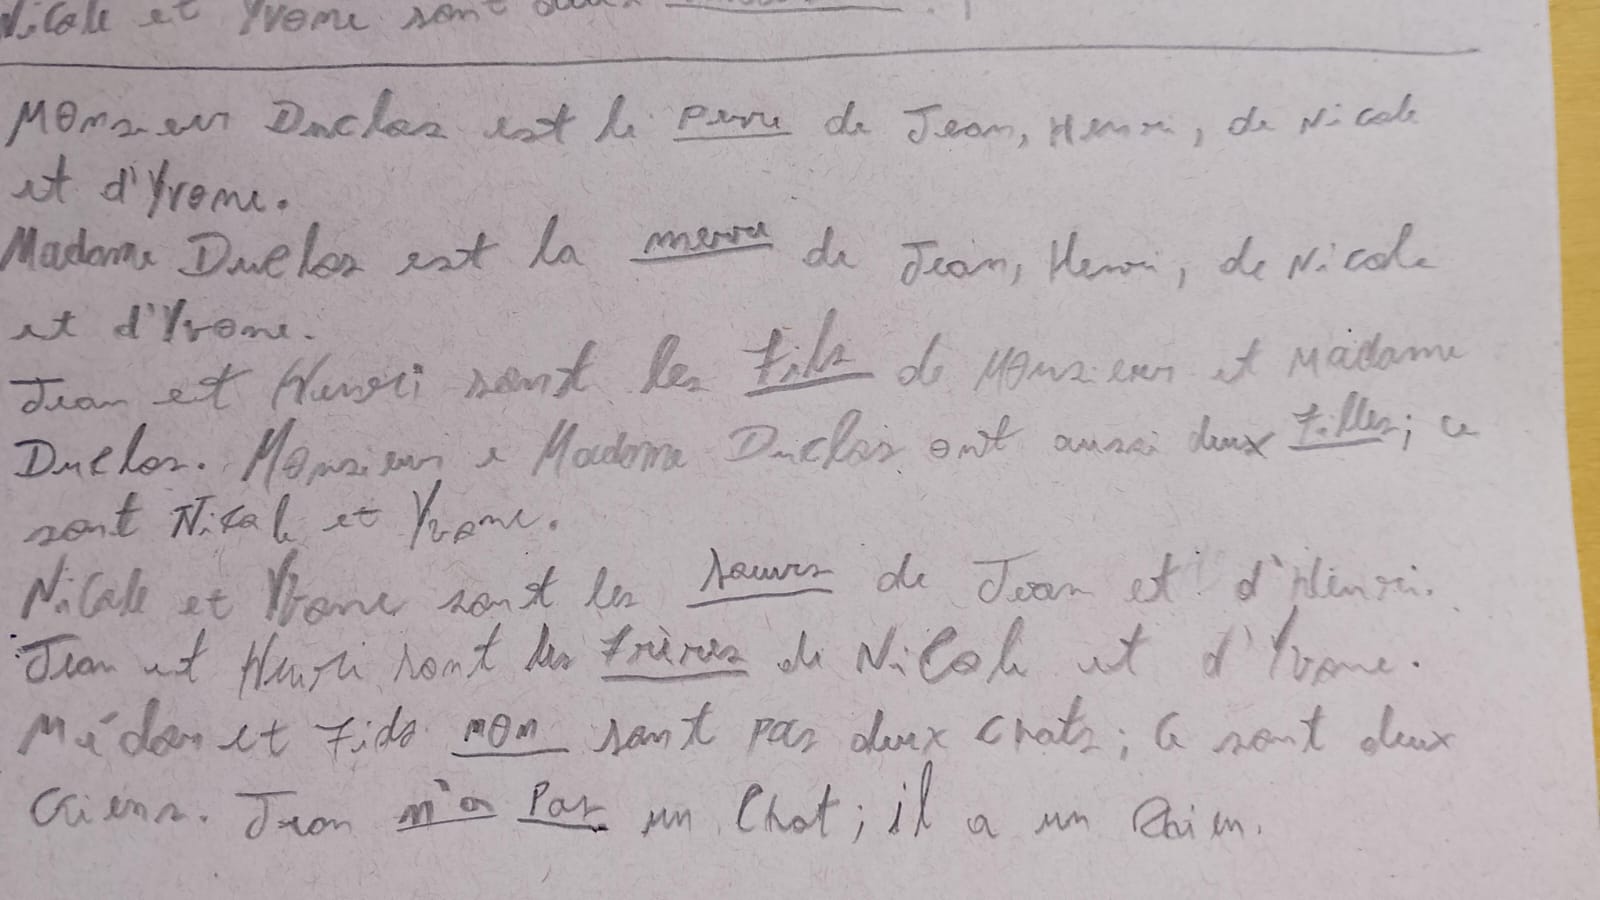 Nicole et Yvone sont deux
Monsieur Duclos est le perre de Jean, Henri, de Nicole
et d'Yvone.
Madame Duclos est la merre de Jean, Henri, de Nicole
et d'Yvone.
Jean et Henri sont les fils de Monsieur et Madame
Duclos. Monsieur e Madame Duclos ont aussi deux filles; ce
sont Nicole et Yvone.
Nicole et Yvone sont les souers de Jean et d'Henri.
Jean et Henri sont les frères de Nicole et d'Yvone.
Médor et Fido non sont pas deux chats; ce sont deux
chiens. Jean n'a Pas un Chat; il a un chien.